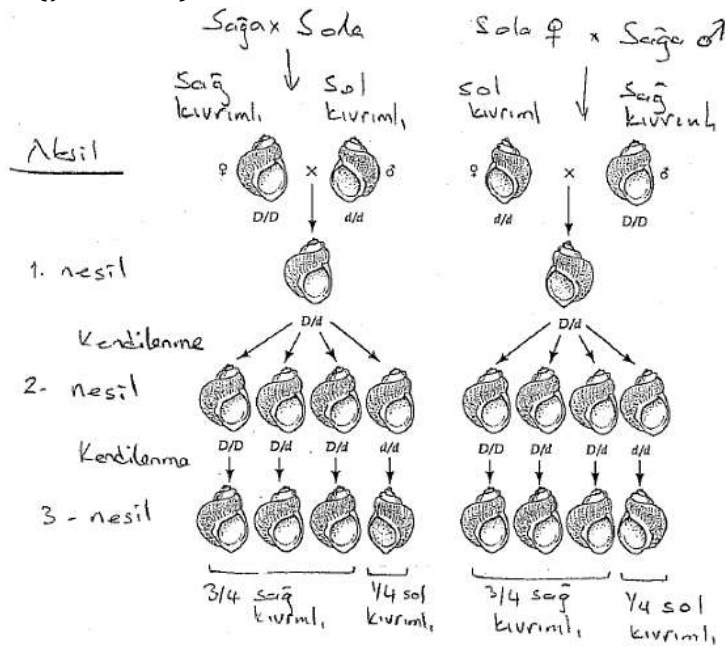 Sağa x Sola
Sola ♀ x Sağa ♂
Sağ kıvrımlı
Sol kıvrımlı
sol kıvrıml
Sağ kıvrımlı
♀ x ♂
D/D d/d
♀ x ♂
d/d D/D
1. nesil
D/d
D/d
Kendilenme
2- nesil
D/D D/d D/d d/d
D/D D/d D/d d/d
Kendilenme
3- nesil
3/4 sağ kıvrımlı
1/4 sol kıvrımlı
3/4 sağ kıvrımlı
1/4 sol kıvrımlı